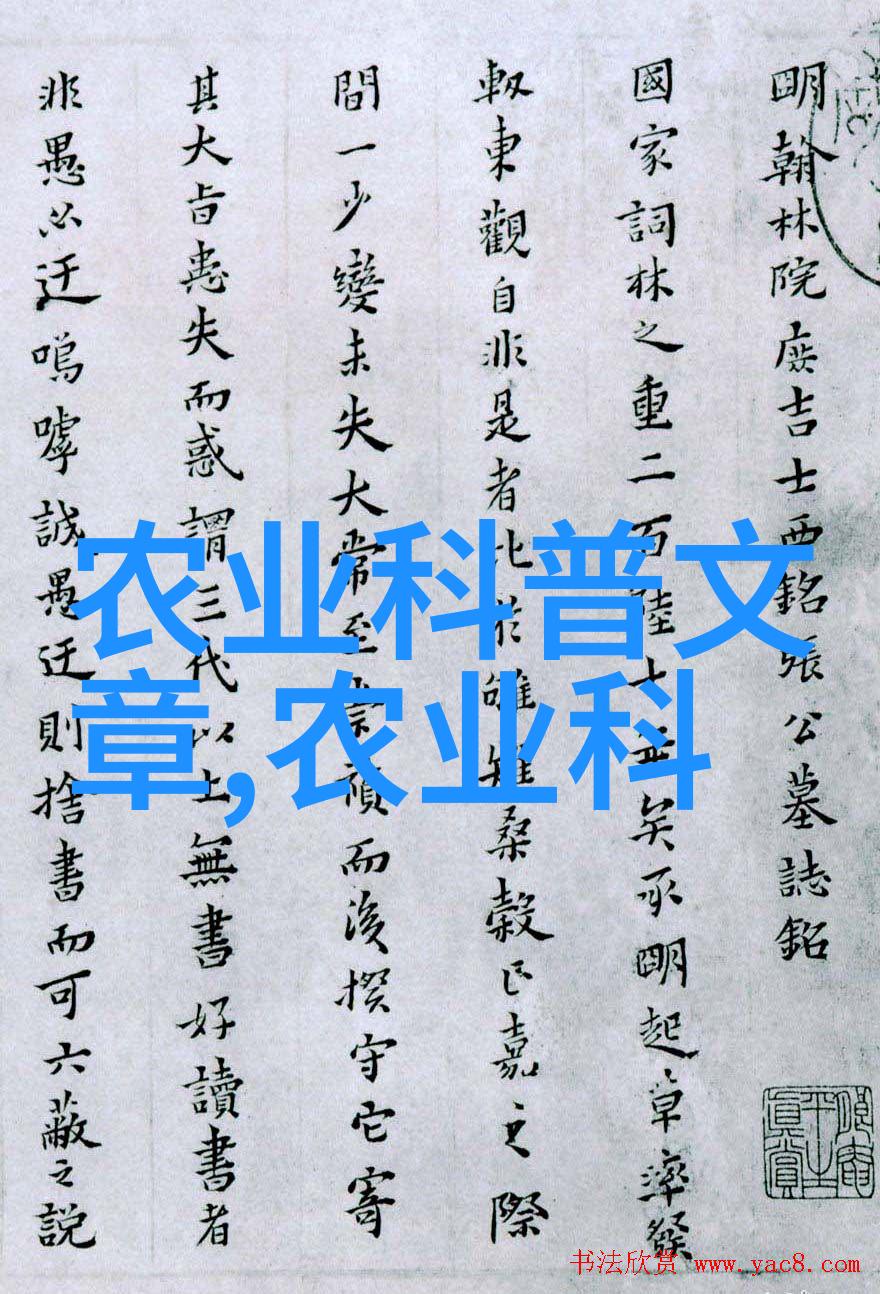 明翰林院庶吉士西銘張公墓誌銘
國家詞林之重二百陸十年矣承明起草率發
軔東觀自非是者比於雊雉桑榖正嘉之際
間一少變未失大常至崇禎而後揆守它寄
其大旨患失而惑謂三代以上無書好讀書者
非愚必迂嗚嘑誠愚迂則捨書而可六蔽之説
农业科普文
章,农业科
书法欣赏 www.yac8.com